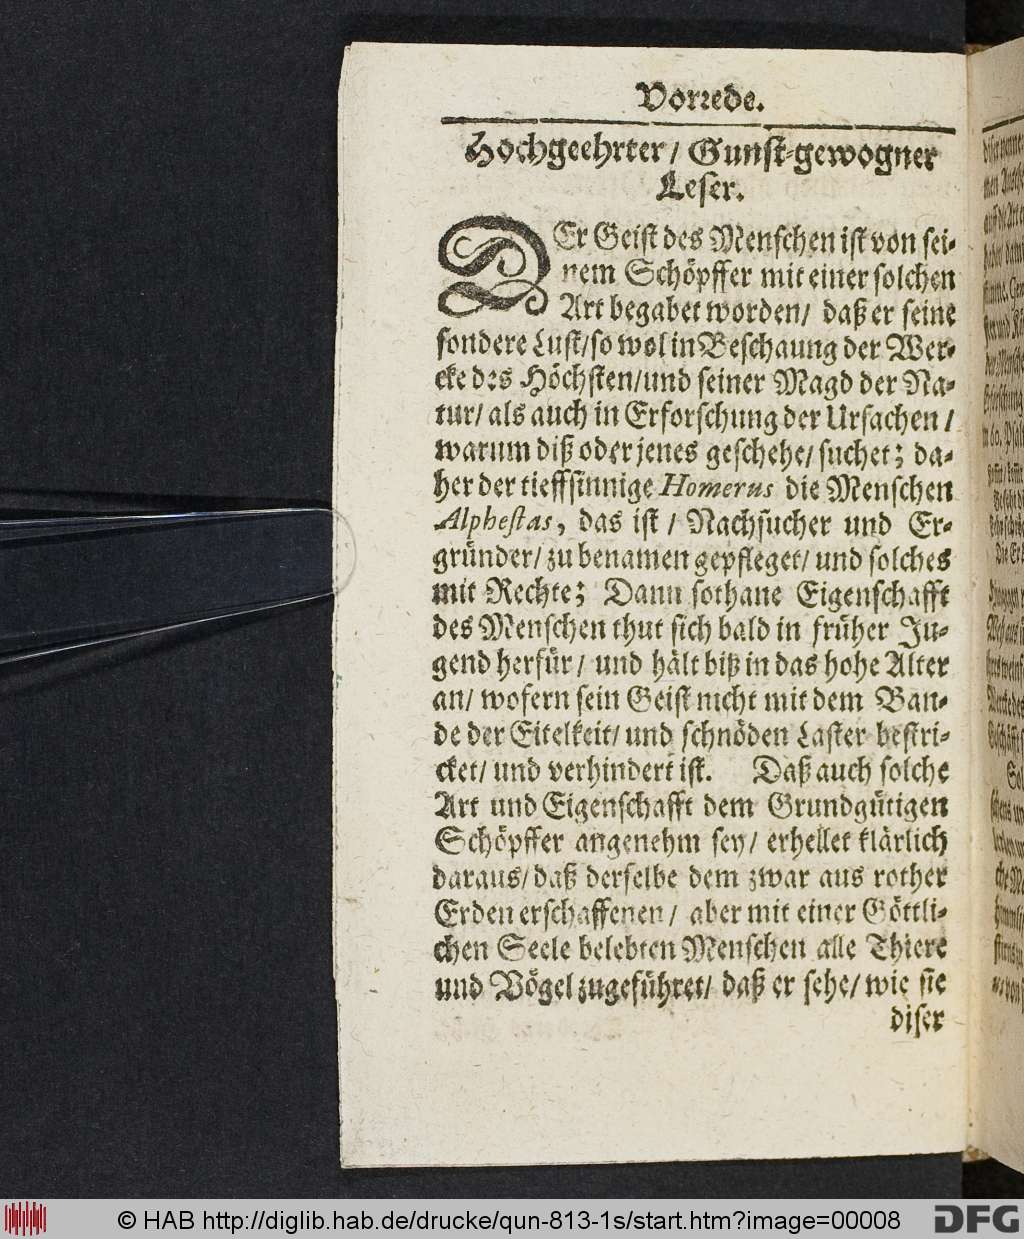 Vorrede.
Hochgeehrter / Gunst-gewogner
Leser.
DEr Geist des Menschen ist von sei-
nem Schöpffer mit einer solchen
Art begabet worden / daß er seine
sondere Lust / so wol in Beschaung der Wer-
cke des Höchsten / und seiner Magd der Na-
tur / als auch in Erforschung der Ursachen /
warum diß oder jenes geschehe / suchet; da-
her der tieffsinnige Homerus die Menschen
Alphestas, das ist / Nachsucher und Er-
gründer / zu benamen gepfleget / und solches
mit Rechte; Dann sothane Eigenschafft
des Menschen thut sich bald in früher Ju-
gend herfür / und hält biß in das hohe Alter
an / wofern sein Geist nicht mit dem Ban-
de der Eitelkeit / und schnöden Laster bestri-
cket / und verhindert ist. Daß auch solche
Art und Eigenschafft dem Grundgütigen
Schöpffer angenehm sey / erhellet klärlich
daraus / daß derselbe dem zwar aus rother
Erden erschaffenen / aber mit einer Göttli-
chen Seele belebten Menschen alle Thiere
und Vögel zugeführet / daß er sehe / wie sie
diser
© HAB http://diglib.hab.de/drucke/qun-813-1s/start.htm?image=00008
DFG